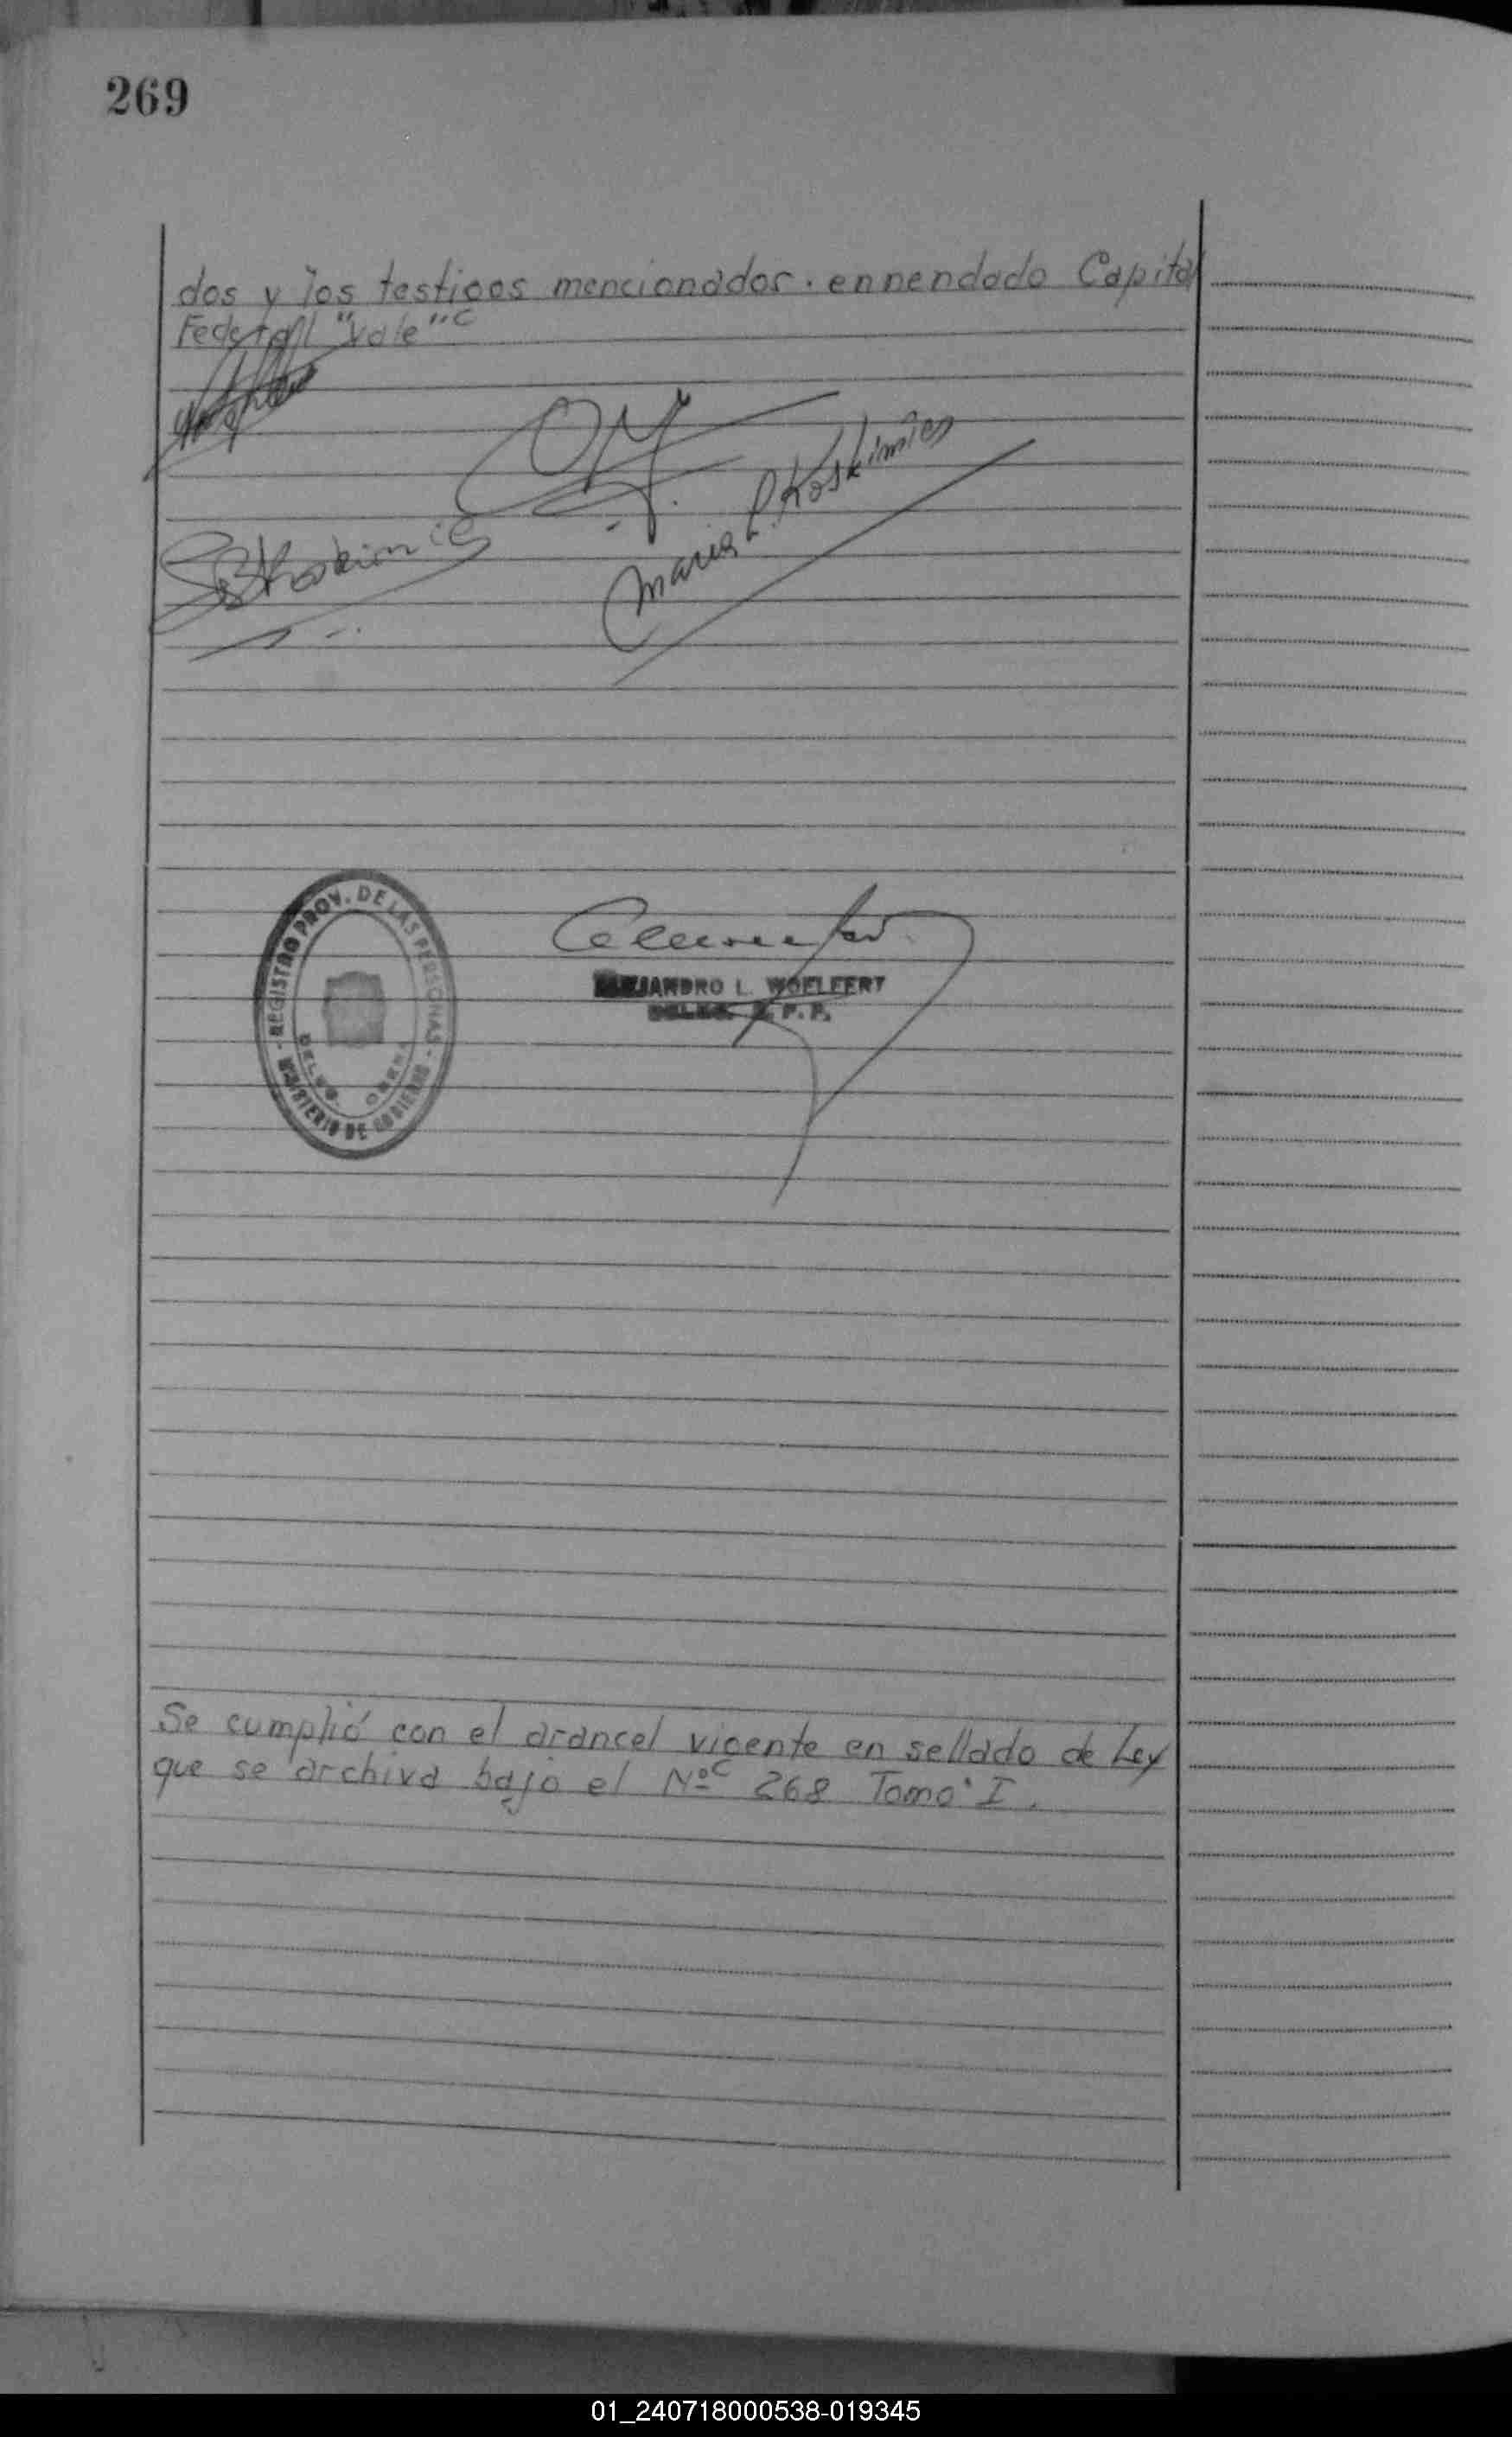 269
dos y los testigos mencionados. ennendado Capital
Federal "Vale" c
Maria L. Koskimies
Koskimies
REGISTRO PROV. DE LAS PERSONAS
MINISTERIO DE GOBIERNO
DELEG. OBERA
ALEJANDRO L. WOELFERT
DELEG. R. P. P.
Se cumplió con el arancel vigente en sellado de Ley
que se archiva bajo el Nº c 268 Tomo I.
01_240718000538-019345